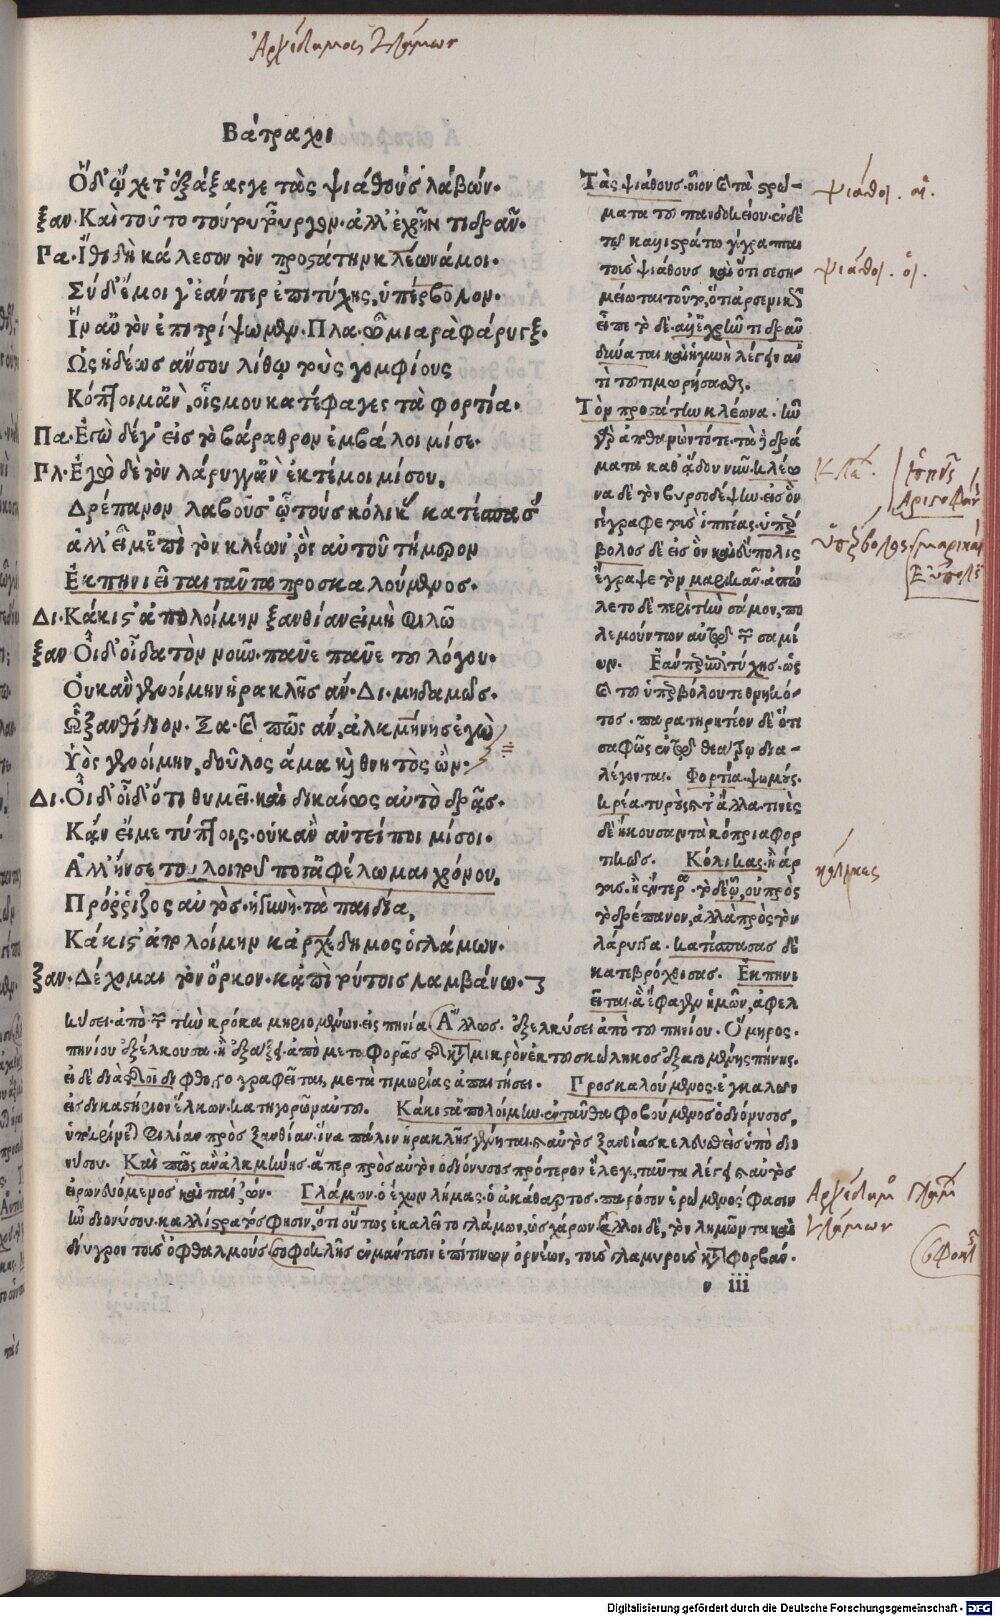 Ἀρχέδημος Γλάμων
Βάτραχοι
Ὅδ' ᾤχετ' ἐξάξας γε τὰς ψιάθους λαβών.
ξαν. Καὶ τοῦτο τούργυρον. ἀλλ' ἐχρῆν τι δρᾶν.
Πα. Ἴθι δὴ κάλεσον τὸν προστάτην κλέωνά μοι.
Σὺ δ' ἔμοι γ' ἐάν περ ἐπιτύχῃς, ὑπέρβολον.
Ἵν' αὐτὸν ἐπιτρίψωμεν. Πλα. ὦ μιαρὰ φάρυγξ.
Ὡς ἡδέως ἄν σου λίθῳ τοὺς γομφίους
Κόπτοιμ' ἂν, οἷς μου κατέφαγες τὰ φορτία.
Πα. Ἐγὼ δέ γ' εἰς τὸ βάραθρον ἐμβάλοιμί σε.
Πλ. Ἐγὼ δὲ τὸν λάρυγγ' ἂν ἐκτέμοιμί σου,
Δρέπανον λαβοῦσ' ᾧ τοὺς κόλικας κατέσπασας
ἀλλ' εἶμ' ἐπὶ τὸν κλέων', ὃς αὐτοῦ τήμερον
Ἐκπηνιεῖται ταῦτα προσκαλούμενος.
Δι. Κάκιστ' ἀπολοίμην ξανθίαν εἰ μὴ φιλῶ
ξαν Οἶδ' οἶδα τὸν νοῦν. παῦε παῦε τοῦ λόγου.
Οὐκ ἂν γενοίμην ἡρακλῆς αὖ. Δι. μηδαμῶς.
Ὦ ξανθίδιον. Ξα. καὶ πῶς ἂν, ἀλκμήνης ἐγὼ
Υἱὸς γενοίμην, δοῦλος ἅμα καὶ θνητὸς ὤν.
Δι. Οἶδ' οἶδ' ὅτι θυμεῖ. καὶ δικαίως αὐτὸ δρᾷς.
Κἄν εἴ με τύπτοις. οὐκ ἂν ἀντείποιμί σοι.
Ἀλλ' ἤν σε τοῦ λοιποῦ ποτ' ἀφέλωμαι χρόνου,
Πρόρριζος αὐτὸς. ἡ γυνὴ. τὰ παιδία,
Κάκιστ' ἀπολοίμην κἀρχέδημος ὁ γλάμων.
ξαν. Δέχομαι τὸν ὅρκον. κἀπὶ τούτοις λαμβάνω.
Τὰς ψιάθους. οἷον καὶ τὰ στρώ-
ματα τοῦ πανδοκείου. ἐν δὲ
τοῖς ψιάθους καὶ ὅτι σεση-
μείωται τοῦτο, ὅτι ἀρσενικῶς
εἶπε
δύναται καὶ ἡ γυνὴ λέγειν αὐ
τὶ τοῦ τιμωρήσασθαι.
Τὸν προστάτην κλέωνα. ἦν
γὰρ ἀποθανὼν τότε. τὰ δρά
ματα καθ' ᾅδου νῦν. κλέω
να δὲ τὸν βυρσοδέψην. εἰς ὃν
ἔγραφε τοὺς ἱππέας. ὑπέρ
βολος δὲ εἰς ὃν καὶ εὔπολις
ἔγραψε τὸν μαρικᾶν. ἀπώ
λετο δὲ περὶ τὴν σάμον, πο
λεμούντων αὐτῶν τῶν σαμί
ων. Ἐάνπερ ἐπιτύχης. ὡς
καὶ τοῦ ὑπερβόλου τεθνηκό-
τος. παρατηρητέον δὲ ὅτι
σαφῶς ἐν τῷ θεάτρῳ δια-
λέγονται. Φορτία. ψωμούς.
κρέα. τυροὺς καὶ τ' ἄλλα. τινὲς
δὲ ἤκουσαν τὰ κόπρια φορ
τικῶς. Κόλικας. ἢ ἄρ
τους. ἢ ἔντερα. τὸ δὲ ᾧ, οὐ πρὸς
τὸ δρέπανον, ἀλλὰ πρὸς τὸν
λάρυγγα. κατέσπασας δὲ
κατεβρόχθισας. Ἐκπηνι
εῖται. ἃ ἔφαγεν ἡμῶν, ἀφελ
κύσει. ἀπὸ τῶν τὴν κρόκα μηριομένων. εἰς πηνία Ἄλλως. ἐξελκύσει ἀπὸ τοῦ πηνίου. Ὅμηρος.
πηνίου ἐξέλκουσα. ἢ ἐξάξει. ἀπὸ μεταφορᾶς
εἰ δὲ διὰ διφθόγγου γράφεται, μετὰ τιμωρίας ἀπαιτήσει. Προσκαλούμενος. ἐγκαλῶν
εἰς δικαστήριον ἕλκων. κατηγορῶν αὐτοῦ. Κάκιστ' ἀπολοίμην. ἐνταῦθα φοβούμενος ὁ διόνυσος,
ὑποκρίνεται φιλίαν πρὸς ξανθίαν. ἵνα πάλιν ἡρακλῆς γένηται καὶ αὐτὸς ξανθίας κελευσθεὶς ὑπὸ διο
νύσου. Καὶ πῶς ἂν ἀλκμήνης. ἅπερ πρὸς αὐτὸν ὁ διόνυσος πρότερον ἔλεγε, ταῦτα λέγει καὶ αὐτὸς
εἰρωνευόμενος καὶ παίζων. Γλάμων. ὁ ἔχων λήμας. ὁ ἀκάθαρτος. παρόσον ἐρώμενος φασιν
ἦν διονύσου. καλλίστρατός φησιν, ὅτι οὕτως ἐκαλεῖτο γλάμων, ὡς χάρων ἄλλοι δὲ, τὸν λημῶντα καὶ
δίυγρον τοὺς ὀφθαλμούς σοφοκλῆς ἐν μάντεσιν ἐπὶ τινων ὀρνέων, τοὺς γλαμυροὺς
ν iii
ψίαθοι. αἱ.
ψίαθοι. οἱ.
Κλέ.
Ἱππῆς
Ἀριστοφάν
Ὑπέρβολος. μαρικᾶ
Εὔπολις
κόλικες
Ἀρχέδημος
Γλάμων
Σοφοκλ
Digitalisierung gefördert durch die Deutsche Forschungsgemeinschaft - DFG